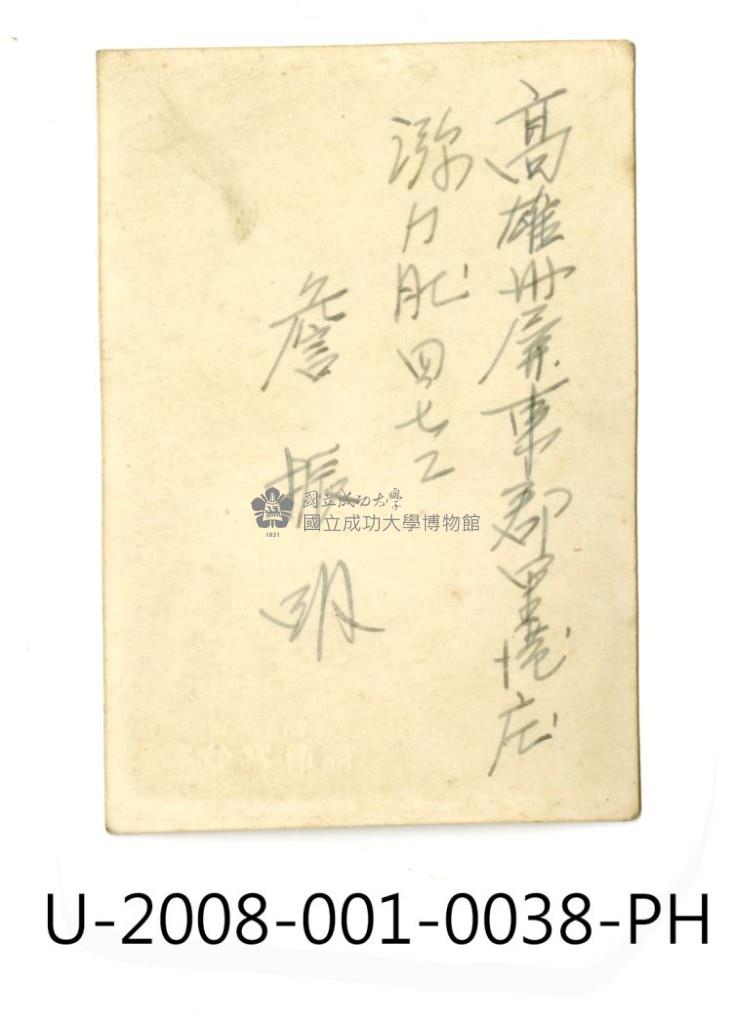 高雄州屏東郡里港庄
瀰力肥四七二
詹振明
國立成功大學
國立成功大學博物館
1931
U-2008-001-0038-PH